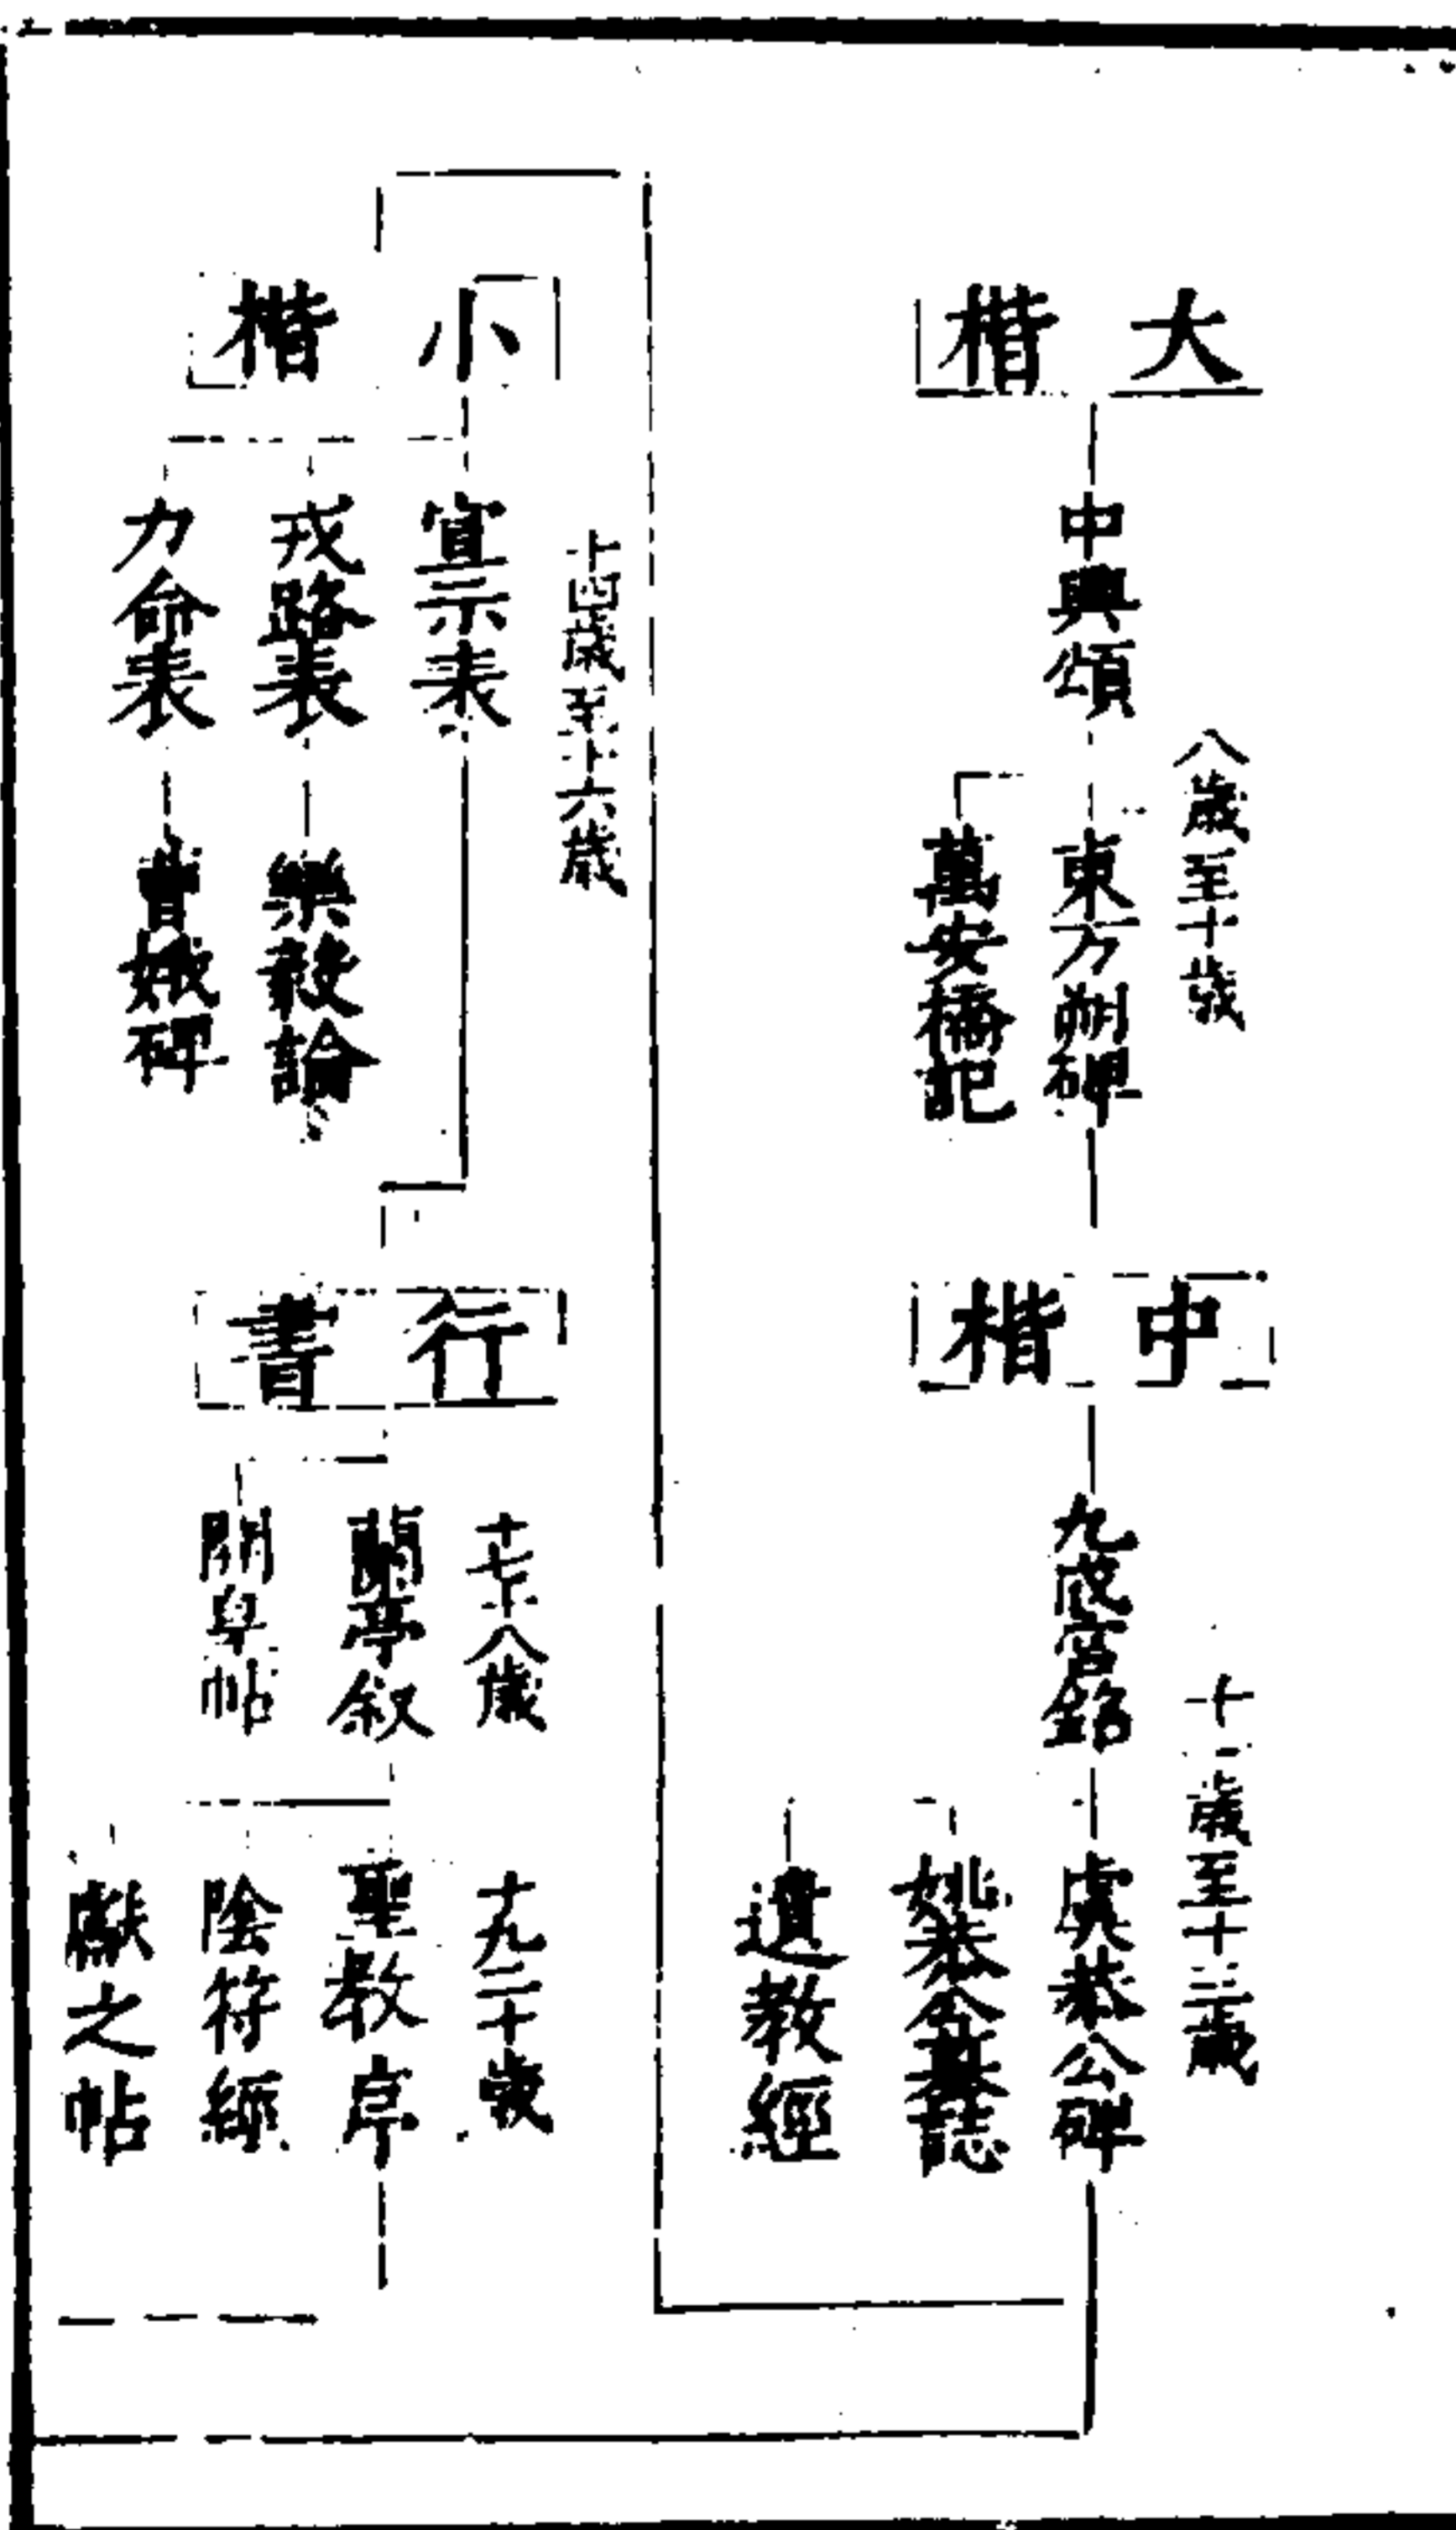 大楷
八歲至十歲
中興頌
東方朔碑
萬安橋記
中楷
十一歲至十三歲
九成宮銘
虞恭公碑
姚恭公墓誌
遺教經
小楷
十四歲至十六歲
宣示表
戎路表
力命表
樂毅論
曹娥碑
行書
十七十八歲
蘭亭叙
開皇帖
十九二十歲
聖教序
陰符經
獻之帖